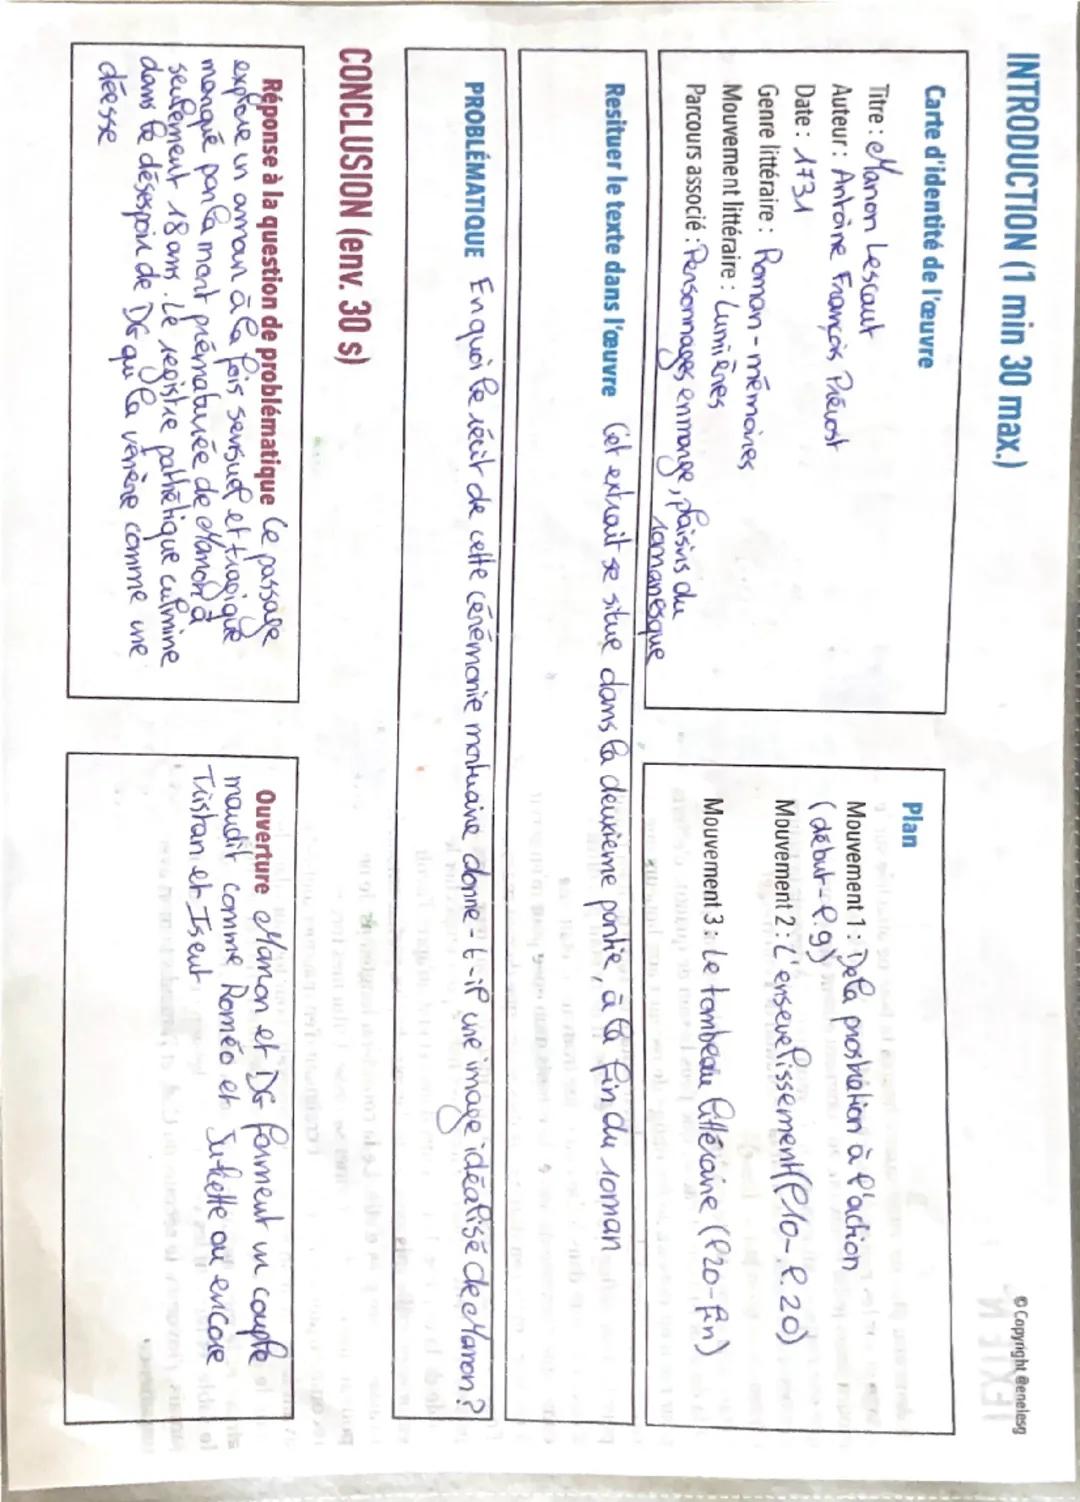 INTRODUCTION (1 min 30 max.)
©Copyright @enelesg
Carte d'identité de l'œuvre
Titre : Manon Lescaut
Auteur : Antoine François Prévost
Date : 1731
Genre littéraire : Roman - mémoires
Mouvement littéraire : Lumières
Parcours associé : Personnages en marge, plaisirs du
romanesque
Plan
Mouvement 1 : De la prostration à l'action
(début - l.9)
Mouvement 2 : L'ensevelissement (l10 - l.20)
Mouvement 3 : Le tombeau littéraire (l20 - fin)
Resituer le texte dans l'œuvre Cet extrait se situe dans la deuxième partie, à la fin du roman
PROBLÉMATIQUE En quoi le récit de cette cérémonie mortuaire donne-t-il une image idéalisé de Manon ?
CONCLUSION (env. 30 s)
Réponse à la question de problématique Ce passage
explore un amour à la fois sensuel et tragique
marqué par la mort prématurée de Manon à
seulement 18 ans. Le registre pathétique culmine
dans le désespoir de DG qui la vénère comme une
déesse
Ouverture Manon et DG forment un couple
maudit comme Roméo et Juliette ou encore
Tristan et Iseut